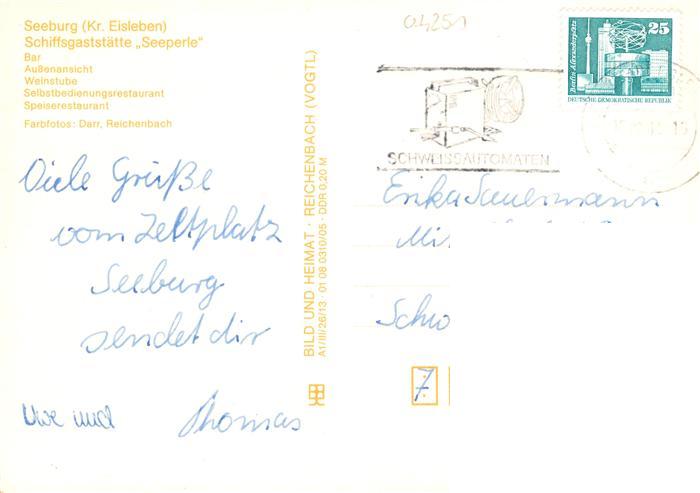 Seeburg (Kr. Eisleben)
Schiffsgaststätte „Seeperle“
Bar
Außenansicht
Weinstube
Selbstbedienungsrestaurant
Speiserestaurant
Farbfotos: Darr, Reichenbach
Viele Grüße
vom Zeltplatz
Seeburg
sendet dir
Uwe und Thomas
BILD UND HEIMAT · REICHENBACH (VOGTL)
A1/III/26/13 01 08 0310/05 · DDR 0,20 M
04251
SCHWEISSAUTOMATEN
25
Berlin, Alexanderplatz
DEUTSCHE DEMOKRATISCHE REPUBLIK
Erika Sauermann
Mi
Schw
7